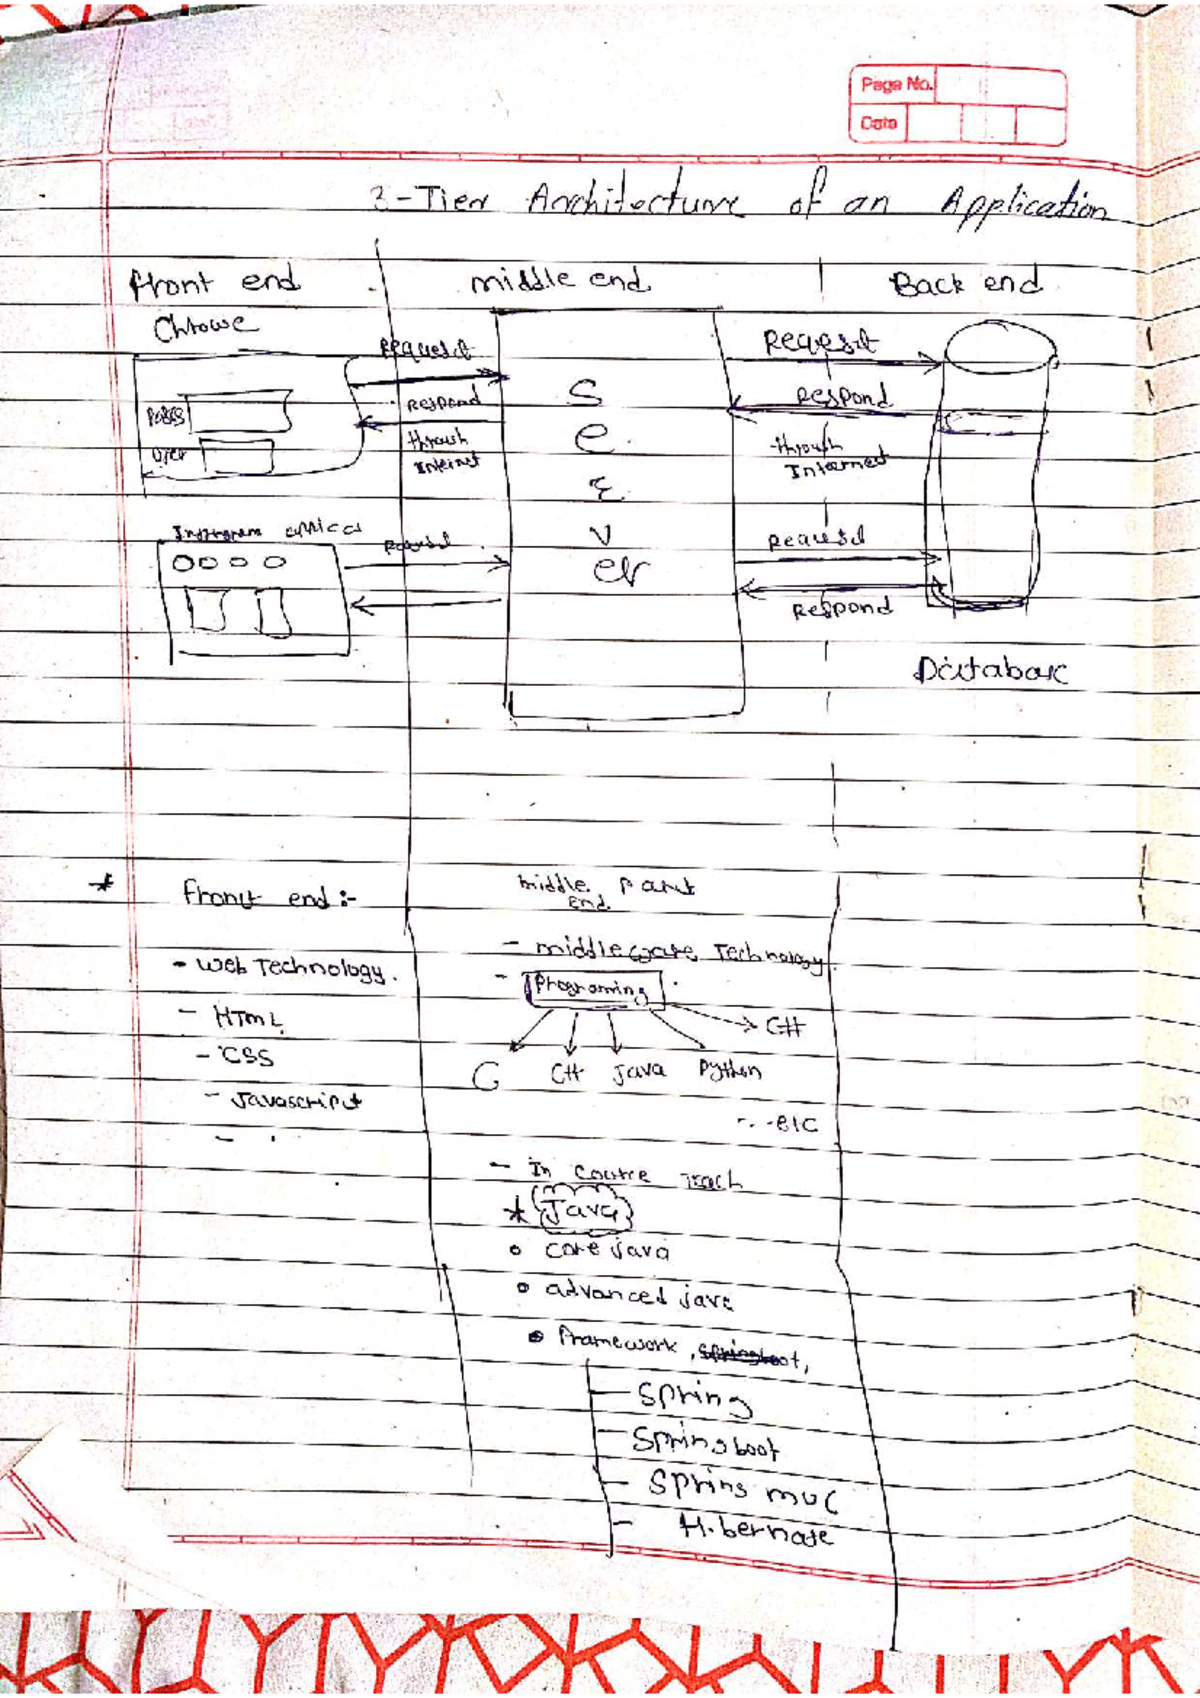 Page No.
Date
3-Tier Architecture of an Application
Front end
middle end
Back end
Chrowe
Request
Respond
through
Internet
Pass
User
Server
Request
Respond
through
Internet
Instagram
Request
Request
Respond
Database
* Front end:-
- Web Technology.
- HTML
- CSS
- Javascript
middle part
end
- middleware Technology
- Programing
C C++ Java Python C#
...etc
- In course Teach
* Java
• core java
• advanced java
• Framework, springboot,
- Spring
- Springboot
- Spring mvc
- Hibernate